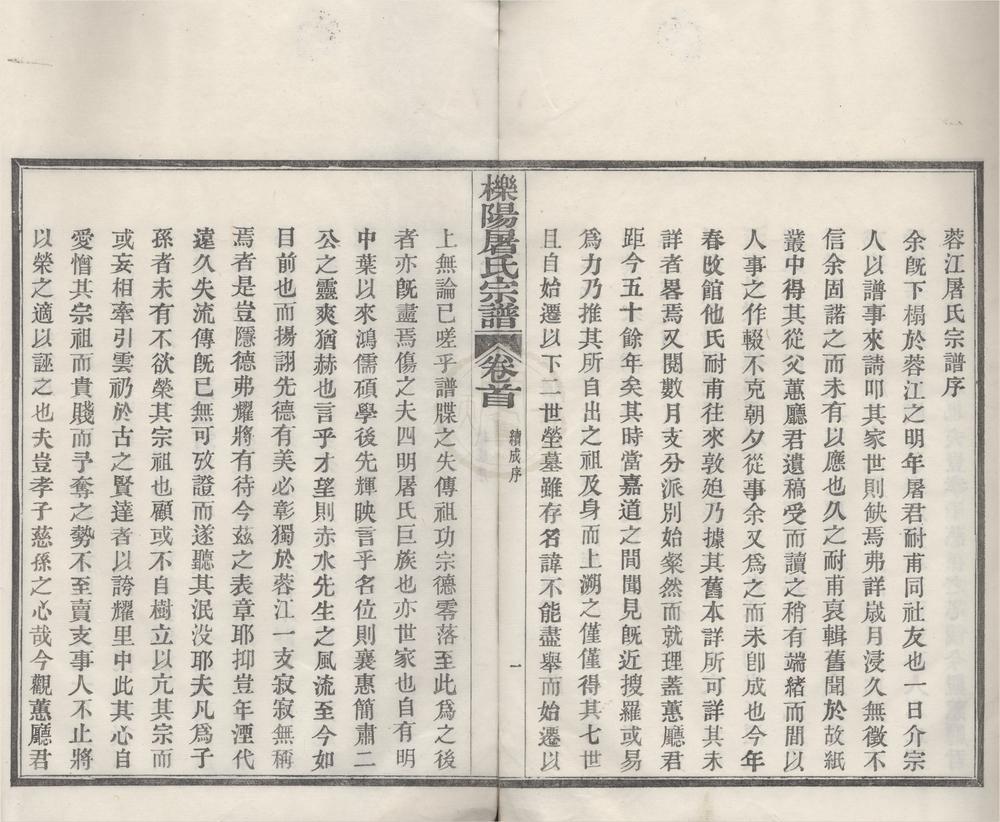 蓉江屠氏宗譜序
余旣下榻於蓉江之明年屠君耐甫同社友也一日介宗
人以譜事來請叩其家世則缺焉弗詳歲月浸久無徵不
信余固諾之而未有以應也久之耐甫裒輯舊聞於故紙
叢中得其從父蕙廳君遺稿受而讀之稍有端緒而間以
人事之作輟不克朝夕從事余又爲之而未卽成也今年
春改館他氏耐甫往來敦廹乃據其舊本詳所可詳其未
詳者畧焉又閱數月支分派別始粲然而就理蓋蕙廳君
距今五十餘年矣其時當嘉道之間聞見旣近搜羅或易
爲力乃推其所自出之祖及身而上溯之僅僅得其七世
且自始遷以下二世塋墓雖存名諱不能盡舉而始遷以
櫟陽屠氏宗譜
卷首
續成序
一
上無論已嗟乎譜牒之失傳祖功宗德零落至此爲之後
者亦旣盡焉傷之夫四明屠氏巨族也亦世家也自有明
中葉以來鴻儒碩學後先輝映言乎名位則襄惠簡肅二
公之靈爽猶赫也言乎才望則赤水先生之風流至今如
目前也而揚詡先德有美必彰獨於蓉江一支寂寂無稱
焉者是豈隱德弗耀將有待今茲之表章耶抑豈年湮代
遠久失流傳旣已無可攷證而遂聽其泯沒耶夫凡爲子
孫者未有不欲榮其宗祖也顧或不自樹立以亢其宗而
或妄相牽引雲礽於古之賢達者以誇耀里中此其心自
愛憎其宗祖而貴賤而予奪之勢不至賣支事人不止將
以榮之適以誣之也夫豈孝子慈孫之心哉今觀蕙廳君